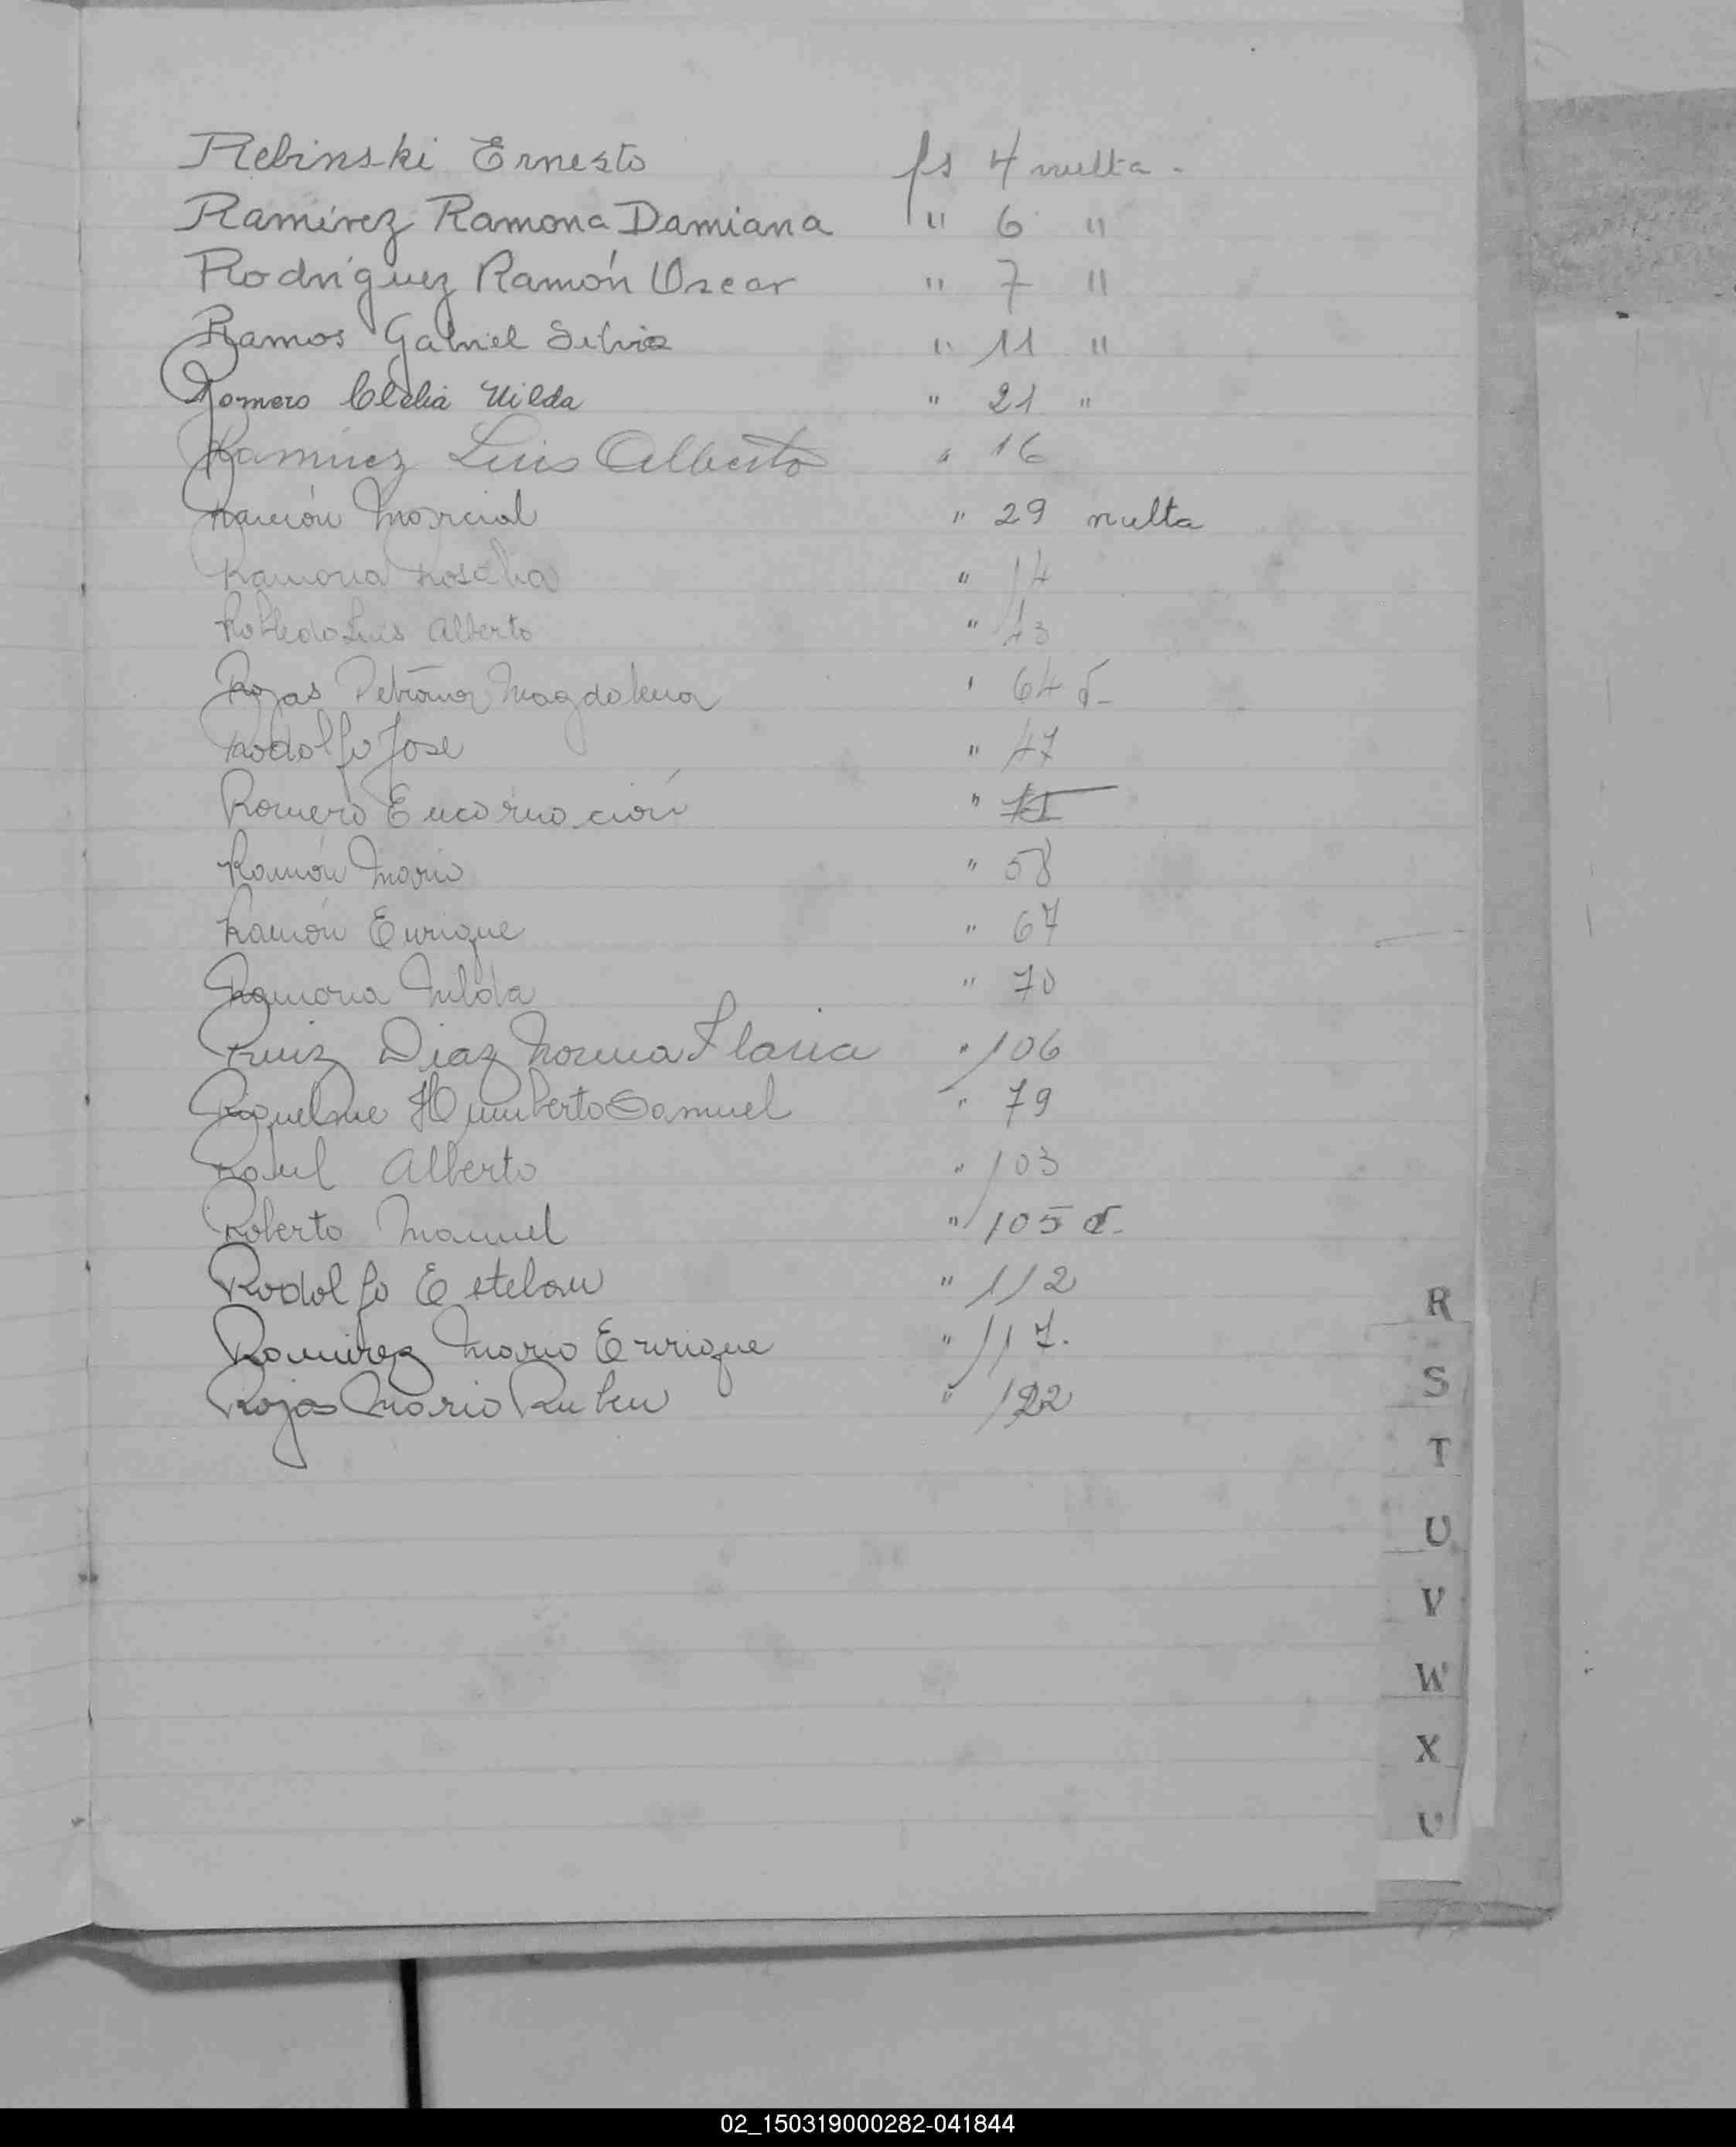 Rebinski Ernesto fs 4 vuelta -
Ramírez Ramona Damiana " 6 "
Rodríguez Ramón Oscar " 7 "
Ramos Gabriel Silvio " 11 "
Romero Clelia Nilda " 21 "
Ramirez Luis Alberto " 16
Ramón Marcial " 29 vuelta
Ramona Rosalia " 14
Robledo Luis Alberto " 43
Rojas Petrona Magdalena " 64
Rodolfo José " 47
Romero Encarnación "
Ramón Mario " 58
Ramón Enrique " 67
Ramona Nilda " 70
Ruiz Diaz Norma Flavia " 106
Riquelme Humberto Samuel " 79
Raul Alberto " 103
Roberto Manuel " 105
Rodolfo Esteban " 112
Ramirez Mario Enrique " 117.
Rojas Mario Ruben " 122
R
S
T
U
V
W
X
02_150319000282-041844